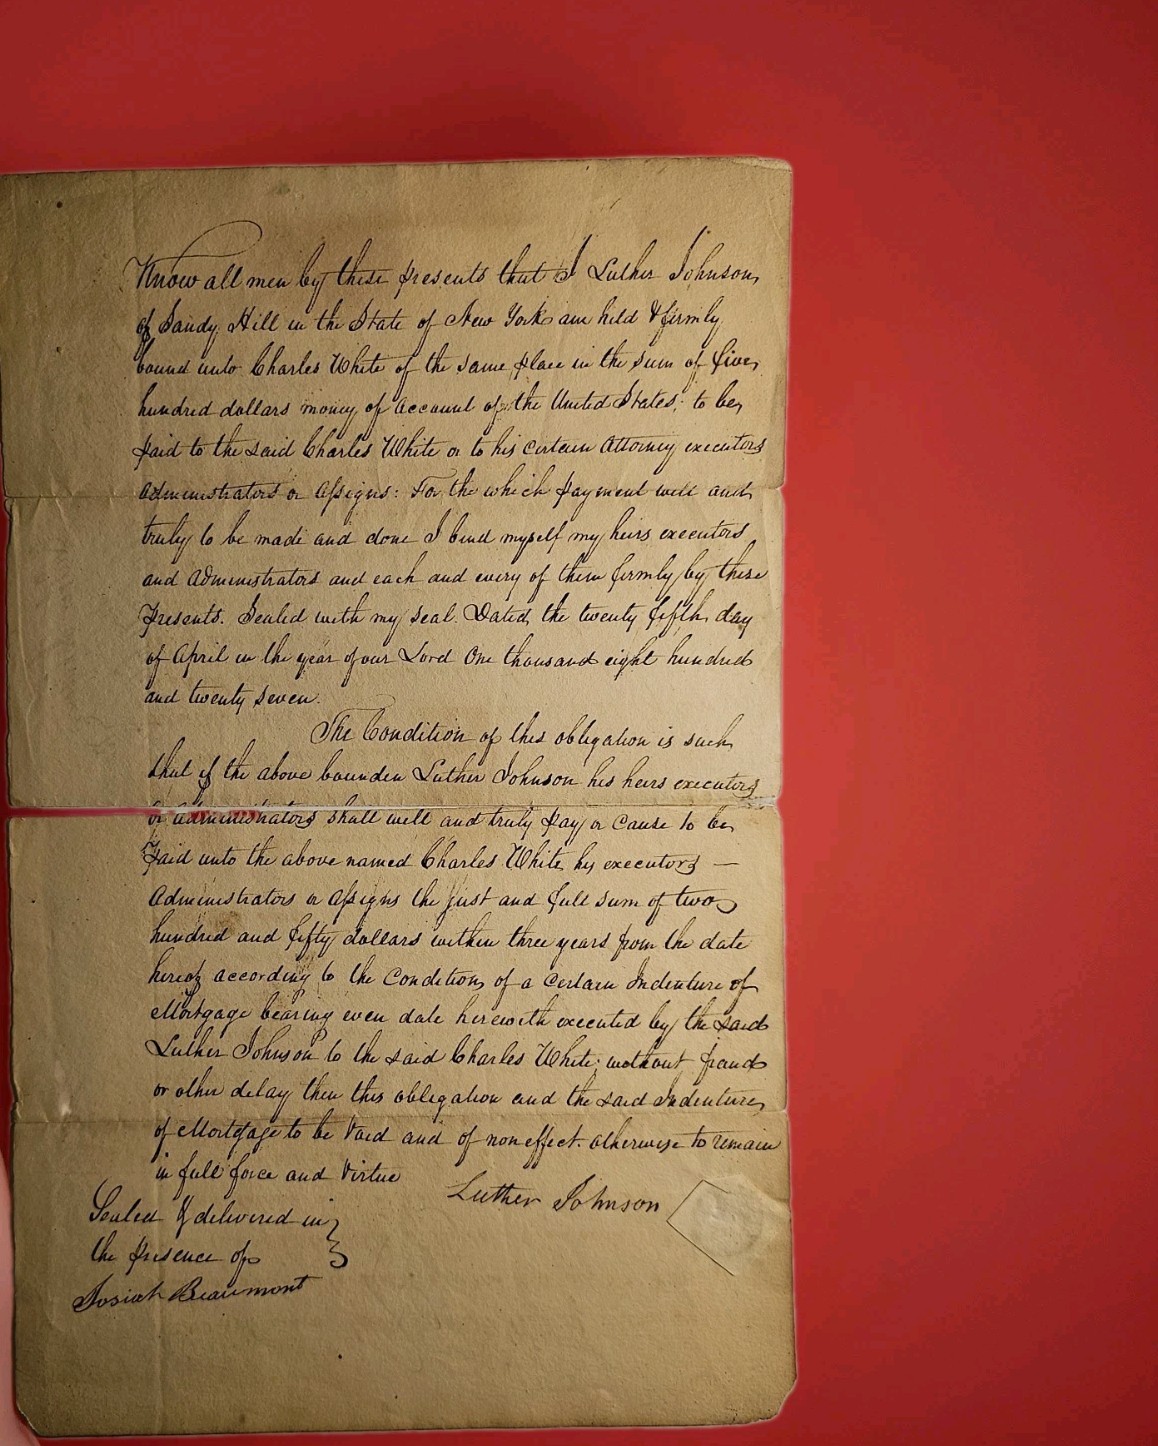 Know all men by these presents that I Luther Johnson
of Sandy Hill in the State of New York am held & firmly
bound unto Charles White of the same place in the sum of five
hundred dollars money of account of the United States; to be
paid to the said Charles White or to his certain Attorney executors
Administrators or Assigns: For the which payment well and
truly to be made and done I bind myself my heirs executors
and Administrators and each and every of them firmly by these
Presents. Sealed with my seal. Dated the twenty fifth day
of April in the year of our Lord One thousand eight hundred
and twenty seven.
The Condition of this obligation is such
that if the above bounden Luther Johnson his heirs executors
or administrators shall well and truly pay or cause to be
Paid unto the above named Charles White his executors —
Administrators or Assigns the just and full sum of two
hundred and fifty dollars within three years from the date
hereof according to the Condition of a certain Indenture of
Mortgage bearing even date herewith executed by the said
Luther Johnson to the said Charles White; without fraud
or other delay then this obligation and the said Indenture
of Mortgage to be Void and of non effect. otherwise to remain
in full force and Virtue
Luther Johnson
Sealed & delivered in
the presence of
Josiah Beaumont